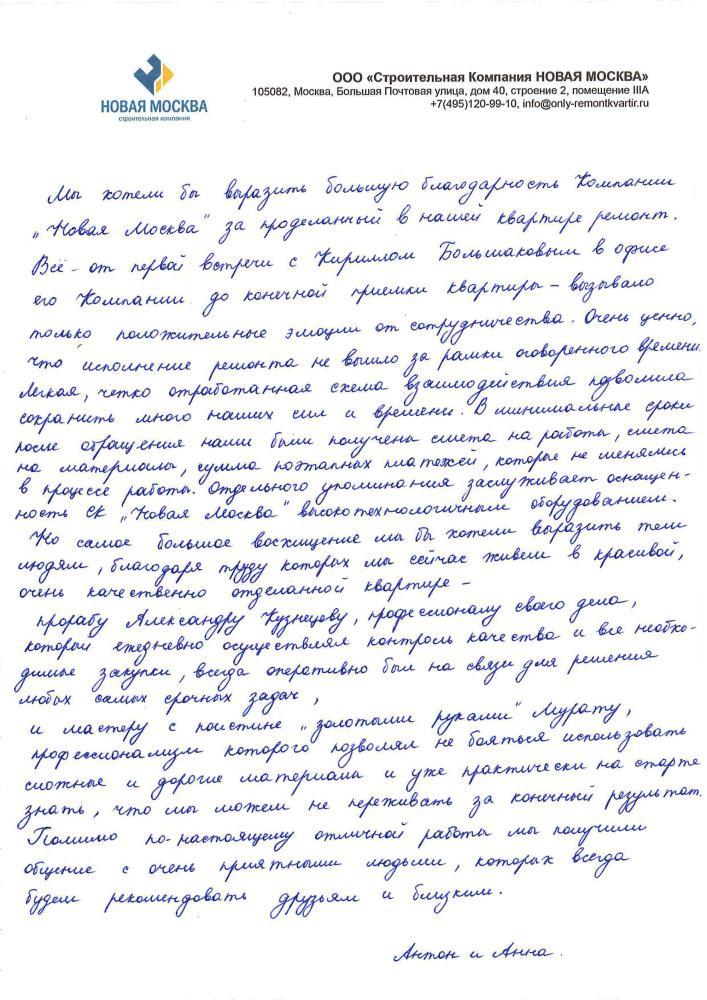 НОВАЯ МОСКВА
строительная компания
ООО «Строительная Компания НОВАЯ МОСКВА»
105082, Москва, Большая Почтовая улица, дом 40, строение 2, помещение IIIА
+7(495)120-99-10, info@only-remontkvartir.ru
Мы хотели бы выразить большую благодарность Компании
„Новая Москва" за проделанный в нашей квартире ремонт.
Всё - от первой встречи с Кириллом Большаковым в офисе
его Компании до конечной приемки квартиры – вызывало
только положительные эмоции от сотрудничества. Очень ценно,
что исполнение ремонта не вышло за рамки оговоренного времени.
Легкая, четко отработанная схема взаимодействия позволила
сохранить много наших сил и времени. В минимальные сроки
после обращения нами были получены смета на работы, смета
на материалы, сумма поэтапных платежей, которые не менялись
в процессе работы. Отдельного упоминания заслуживает оснащен-
ность СК „Новая Москва" высокотехнологичным оборудованием.
Но самое большое восхищение мы бы хотели выразить тем
людям, благодаря труду которых мы сейчас живем в красивой,
очень качественно отделанной квартире –
прорабу Александру Кузнецову, профессионалу своего дела,
который ежедневно осуществлял контроль качества и все необхо-
димые закупки, всегда оперативно был на связи для решения
любых самых срочных задач,
и мастеру с поистине „золотыми руками" Мурату,
профессионализм которого позволял не бояться использовать
сложные и дорогие материалы и уже практически на старте
знать, что мы можем не переживать за конечный результат.
Помимо по-настоящему отличной работы мы получили
общение с очень приятными людьми, которых всегда
будем рекомендовать друзьям и близким.
Антон и Анна.